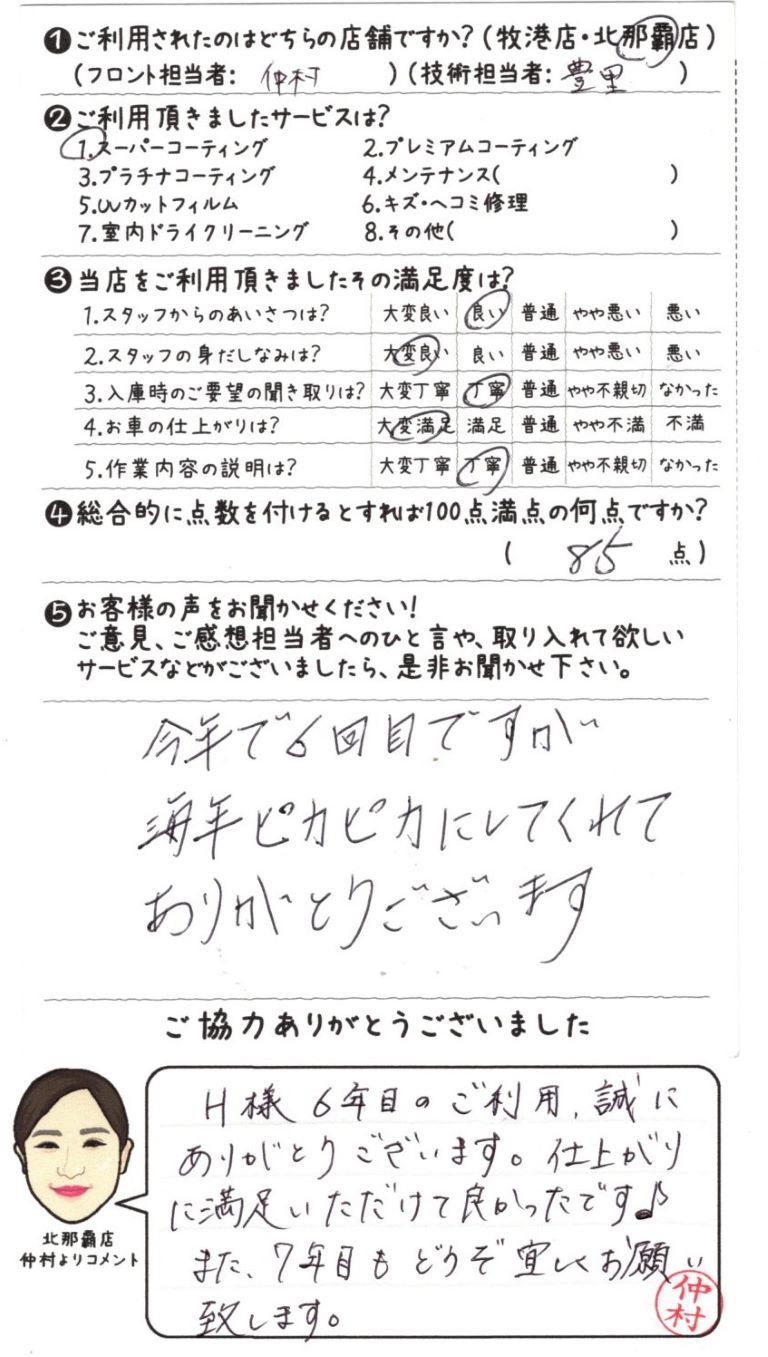 ❶ご利用されたのはどちらの店舗ですか?(牧港店・北那覇店)
(フロント担当者: 仲村 )(技術担当者: 豊里 )
❷ご利用頂きましたサービスは?
1.スーパーコーティング 2.プレミアムコーティング
3.プラチナコーティング 4.メンテナンス( )
5.UVカットフィルム 6.キズ・ヘコミ修理
7.室内ドライクリーニング 8.その他( )
❸当店をご利用頂きましたその満足度は?
1.スタッフからのあいさつは? 大変良い 良い 普通 やや悪い 悪い
2.スタッフの身だしなみは? 大変良い 良い 普通 やや悪い 悪い
3.入庫時のご要望の聞き取りは? 大変丁寧 丁寧 普通 やや不親切 なかった
4.お車の仕上がりは? 大変満足 満足 普通 やや不満 不満
5.作業内容の説明は? 大変丁寧 丁寧 普通 やや不親切 なかった
❹総合的に点数を付けるとすれば100点満点の何点ですか?
( 85 点)
❺お客様の声をお聞かせください!
ご意見、ご感想担当者へのひと言や、取り入れて欲しい
サービスなどがございましたら、是非お聞かせ下さい。
今年で6回目ですが
毎年ピカピカにしてくれて
ありがとうございます
ご協力ありがとうございました
H様 6年目のご利用、誠に
ありがとうございます。仕上がり
に満足いただけて良かったです♪
また、7年目もどうぞ宜しくお願い
致します。
北那覇店
仲村よりコメント
仲村